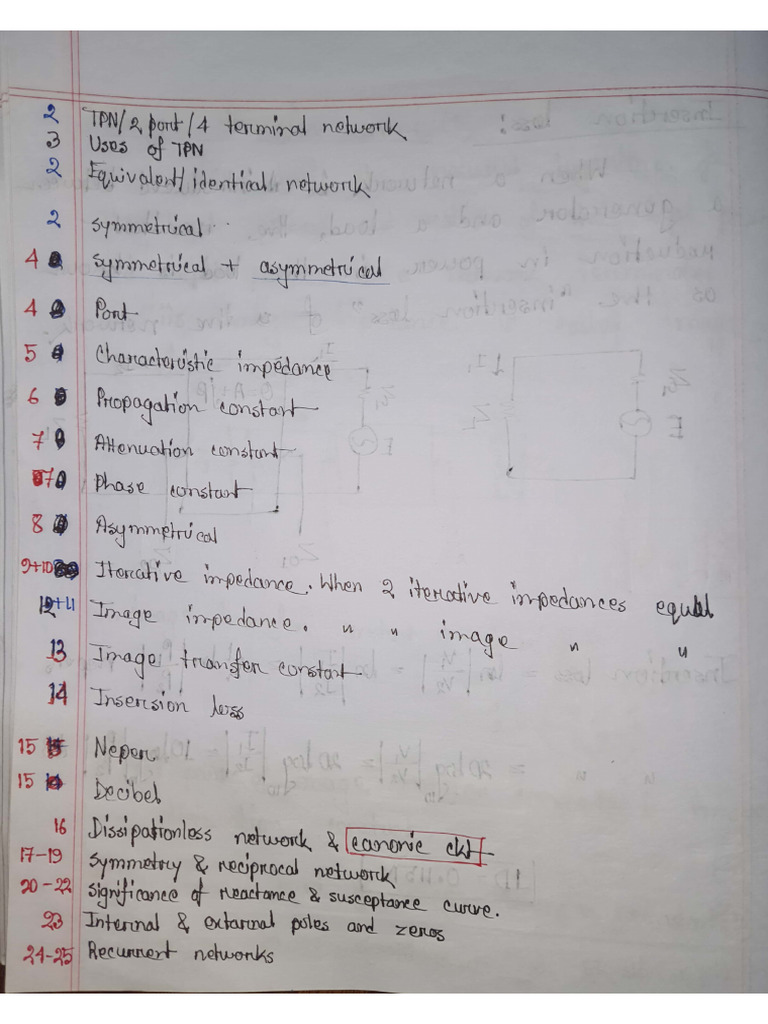 2 TPN/2 port/4 terminal network
3 Uses of TPN
2 Equivalent/identical network
2 symmetrical
4 symmetrical + asymmetrical
4 Port
5 Characteristic impedance
6 Propagation constant
7 Attenuation constant
7 Phase constant
8 Asymmetrical
9+10 Iterative impedance. When 2 iterative impedances equal
12+11 Image impedance. " " image " "
13 Image transfer constant
14 Insersion loss
15 Neper
15 Decibel
16 Dissipationless network & canonic ckt
17-19 Symmetry & reciprocal network
20-22 Significance of reactance & susceptance curve.
23 Internal & extarnal poles and zeros
24-25 Recurrent networks